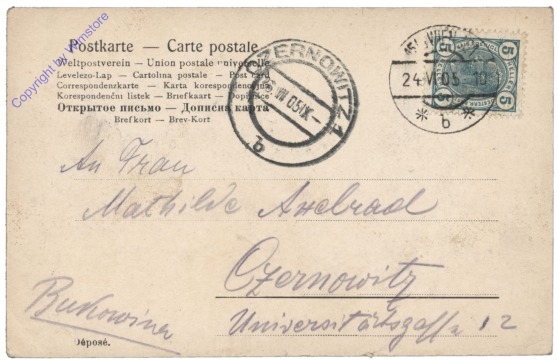 Postkarte — Carte postale
Weltpostverein – Union postale universelle
Levelezo-Lap — Cartolina postale — Post card
Correspondenzkarte — Karta korespondencyjna
Korespondenční lístek — Briefkaart — Dopisnice
Открытое письмо — Дописна карта
Brefkort — Brev-Kort
CZERNOWITZ 1
VII 05 IX
b
WIEN
24 VI 05 10
* b *
5 5
5 5
An Frau
Mathilde Axelrad
Czernowitz
Bukowina
Universitätsgasse 12
Déposé.
Copyright by Wimstore